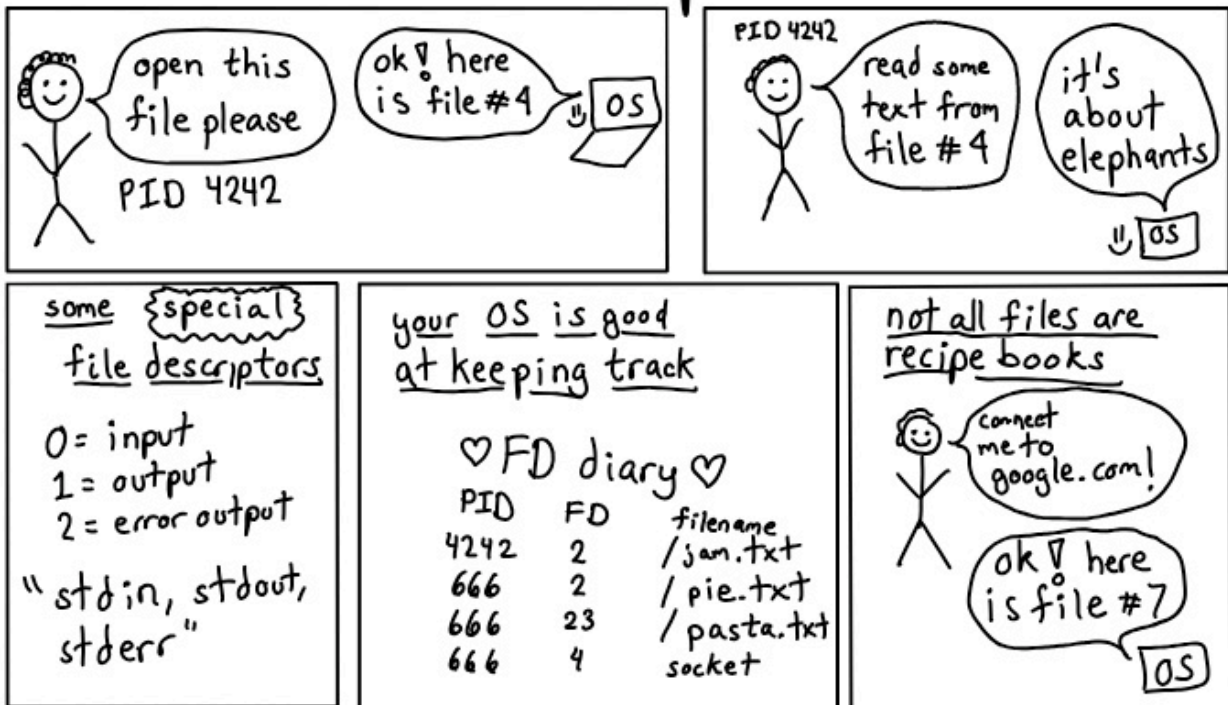 open this
file please
PID 4242
ok! here
is file #4
OS
PID 4242
read some
text from
file #4
it's
about
elephants
OS
some special
file descriptors
0 = input
1 = output
2 = error output
"stdin, stdout,
stderr"
your OS is good
at keeping track
♡ FD diary ♡
PID FD filename
4242 2 /jam.txt
666 2 /pie.txt
666 23 /pasta.txt
666 4 socket
not all files are
recipe books
connect
me to
google.com!
ok! here
is file #7
OS